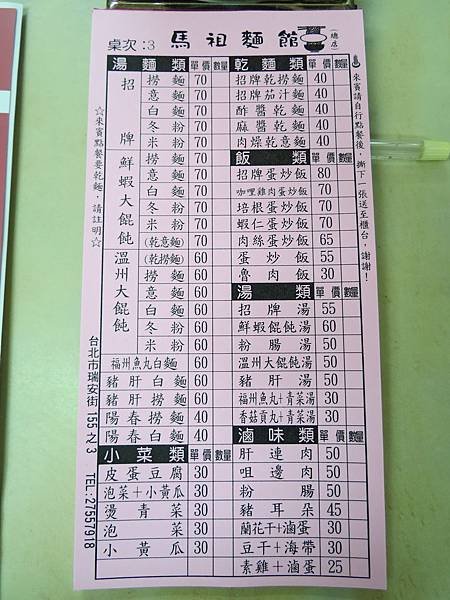 桌次:3 馬祖麵館(總店)
湯麵類 單價 數量
招牌鮮蝦大餛飩
撈麵 70
意麵 70
白麵 70
冬粉 70
米粉 70
撈麵 70
意麵 70
白麵 70
冬粉 70
米粉 70
(乾意麵) 70
(乾撈麵)
溫州大餛飩
撈麵 60
意麵 60
白麵 60
冬粉 60
米粉 60
福州魚丸白麵 60
豬肝白麵 60
豬肝撈麵 60
陽春撈麵 40
陽春白麵 40
小菜類 單價 數量
皮蛋豆腐 30
泡菜+小黃瓜 30
燙青菜 30
泡菜 30
小黃瓜 30
乾麵類 單價 數量
招牌乾撈麵 40
招牌茄汁麵 40
酢醬乾麵 40
麻醬乾麵 40
肉燥乾意麵 40
飯類 單價 數量
招牌蛋炒飯 80
咖哩雞肉蛋炒飯 70
培根蛋炒飯 70
蝦仁蛋炒飯 70
肉絲蛋炒飯 65
蛋炒飯 55
魯肉飯 30
湯類 單價 數量
招牌湯 55
鮮蝦餛飩湯 60
粉腸湯 50
溫州大餛飩湯 50
豬肝湯 50
福州魚丸+青菜湯 30
香菇貢丸+青菜湯 30
滷味類 單價 數量
肝連肉 50
咀邊肉 50
粉腸 50
豬耳朵 45
蘭花干+滷蛋 30
豆干+海帶 30
素雞+滷蛋 25
☆來賓點餐要乾麵,請註明☆
台北市瑞安街155之3 TEL:27557918
來賓請自行點餐後,撕下一張送至櫃台,謝謝!